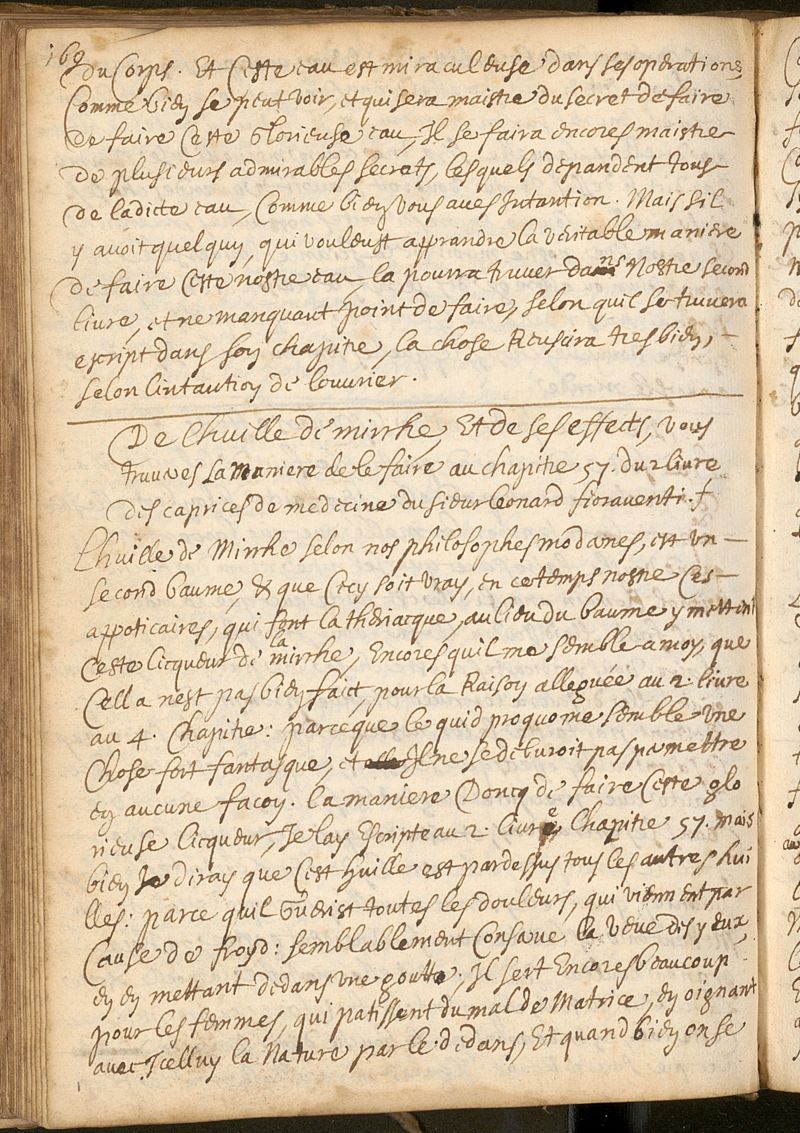 160
du Corps. Et Ceste eau est miraculeuse dans ses operations
Comme bien se peut voir, et qui sera maistre du secret de faire
de faire Ceste Glorieuse eau, Il se faira encores maistre
de plusieurs admirables secrets, lesquels depandent tous
de ladicte eau, Comme bien vous aves Intantion. Mais sil
y avoit quelquun, qui vouleust apprandre la veritable maniere
de faire Ceste nostre eau, la pourra truver dans Nostre second
livre, et ne manquant point de faire, selon quil se truvera
escript dans son chapitre, la chose Reuscira tres bien,
selon lintantion de louvrier.
De lhuille de mirrhe, Et de ses effects, vous
truuves la maniere de le faire au chapitre 57. du 2 livre
des caprices de medecine du sieur leonard fioraventi.
Lhuille de Mirrhe selon nos philosophes modarnes, est un
second baume, & que Cecy soit vray, en ce temps nostre Ces
appoticaires, qui font la theriacque, au lieu du baume y mettent
Ceste licqueur de la mirrhe, Encores quil me semble a moy, que
Cella nest pas bien faict, pour la Raison alleguée au 2. livre
au 4. Chapitre: parce que le quid pro quo me semble une
Chose fort fantasque, et Il ne se debvroit pas pamettre
en aucune facon. la maniere Doncq de faire Ceste glo
rieuse licqueur, Je lay Escripte au 2. livre, Chapitre 57. mais
bien Je diray que Cest huille est pardessus tous les autres hui
lles: parce quil Guerist toutes les douleurs, qui viennent par
Cause de froyd: semblablement Conserve la veue des yeux,
en en mettant dedans une goutte, Il sert Encores beaucoup
pour les femmes, qui patissent du mal de Matrice, en oignant
avec Icelluy la Nature par le dedans, Et quand bien on se